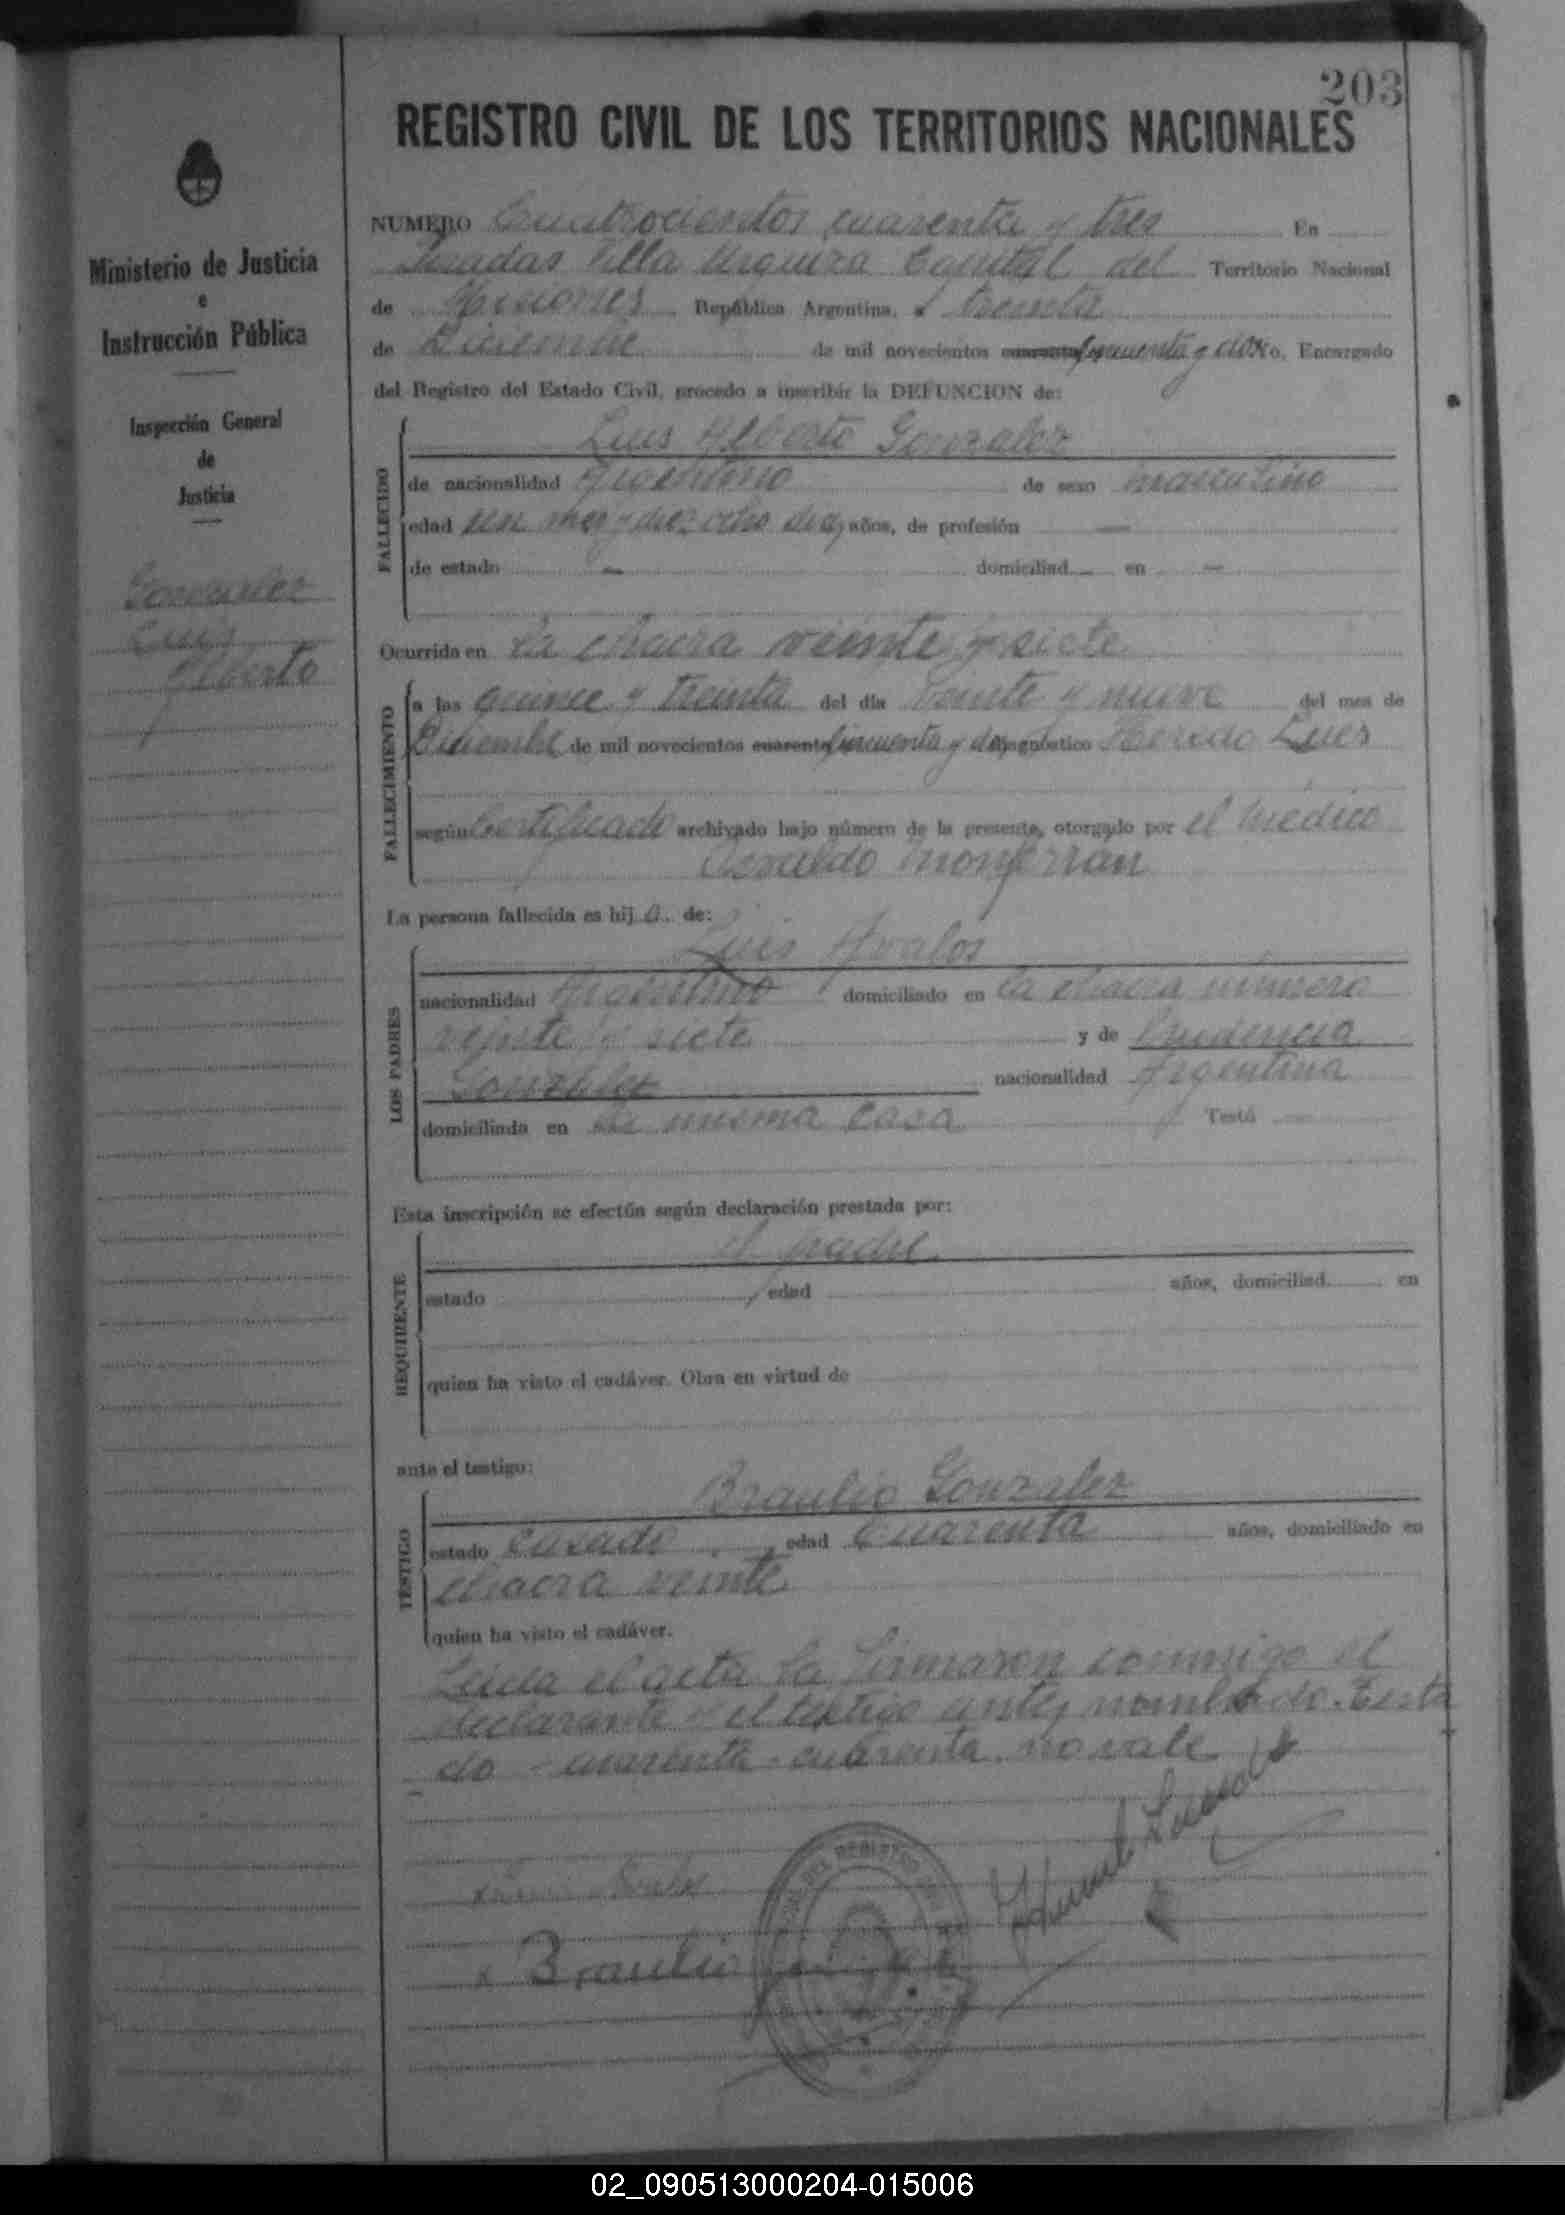 203
REGISTRO CIVIL DE LOS TERRITORIOS NACIONALES
Ministerio de Justicia
e
Instrucción Pública
Inspección General
de
Justicia
Gonzalez
Luis
Alberto
NUMERO Cuatrocientos cuarenta y tres En
Posadas Villa Urquiza Capital del Territorio Nacional
de Misiones República Argentina, a treinta
de Diciembre de mil novecientos cuarenta cincuenta y dos Yo, Encargado
del Registro del Estado Civil, procedo a inscribir la DEFUNCION de:
FALLECIDO
Luis Alberto Gonzalez
de nacionalidad Argentino de sexo masculino
edad un mes y diez ocho dias años, de profesión —
de estado — domiciliad — en —
Ocurrida en la chacra veinte y siete
FALLECIMIENTO
a las quince y treinta del día veinte y nueve del mes de
Diciembre de mil novecientos cuarenta cincuenta y dos diagnóstico Heredo Lues
según Certificado archivado bajo número de la presente, otorgado por el médico
Osvaldo Monferran
La persona fallecida es hij o. de:
LOS PADRES
Luis Avalos
nacionalidad Argentino domiciliado en la chacra número
veinte y siete y de Prudencia
Gonzalez nacionalidad Argentina
domiciliada en la misma casa Testó —
Esta inscripción se efectúa según declaración prestada por:
REQUIRENTE
el padre
estado edad años, domiciliad en
quien ha visto el cadáver. Obra en virtud de
ante el testigo:
TESTIGO
Braulio Gonzalez
estado casado edad cuarenta años, domiciliado en
chacra veinte
quien ha visto el cadáver.
Leida el acta la firmaron conmigo el
declarante y el testigo antes nombrado. Testa
do - cuarenta - cuarenta. no vale
x Avalos
x Braulio
DEL REGISTRO
02_090513000204-015006